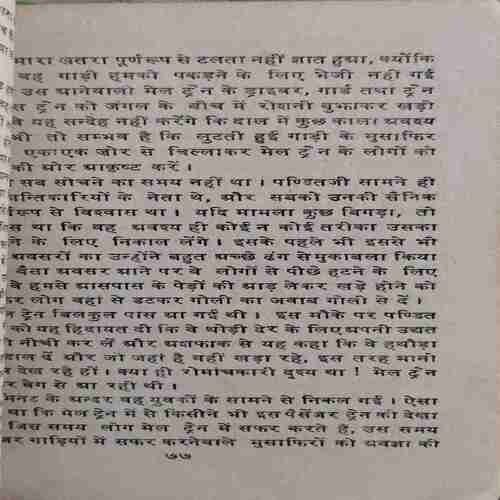 मारा खतरा पूर्णरूप से टलता नहीं ज्ञात हुआ, क्योंकि
वह गाड़ी हमको पकड़ने के लिए भेजी नहीं गई
उस आनेवाली मेल ट्रेन के ड्राइवर, गार्ड तथा ट्रेन
स ट्रेन को जंगल के बीच में रोशनी बुझाकर खड़ी
वे यह सन्देह नहीं करेंगे कि दाल में कुछ काला अवश्य
भी तो सम्भव है कि लुटती हुई गाड़ी के मुसाफिर
एकाएक जोर से चिल्लाकर मेल ट्रेन के लोगों को
की ओर आकृष्ट करें ।
सब सोचने का समय नहीं था । पण्डितजी सामने ही
न्तिकारियों के नेता थे, और सबको उनकी सैनिक
रूप से विश्वास था । यदि मामला कुछ बिगड़ा, तो
स था कि वह अवश्य ही कोई न कोई तरीका उसका
ने के लिए निकाल लेंगे । इसके पहले भी इससे भी
अवसरों का उन्होंने बहुत अच्छे ढंग से मुकाबला किया
वैसा अवसर आने पर वे लोगों से पीछे हटने के लिए
वे हमसे आसपास के पेड़ों की आड़ लेकर खड़े होने को
र लोग वहां से डटकर गोली का जवाब गोली से दें ।
ट्रेन बिलकुल पास आ गई थी । इस मौके पर पण्डित
को यह हिदायत दी कि वे थोड़ी देर के लिए अपनी उद्यत
नीची कर लें और अशफाक से यह कहा कि वे हथौड़ा
डाल दें और जो जहां है वहीं खड़ा रहे, इस तरह मानो
देख रहे हों । क्या ही रोमांचकारी दृश्य था ! मेल ट्रेन
र वेग से आ रही थी ।
मिनट के अन्दर वह युवकों के सामने से निकल गई । ऐसा
था कि मेल ट्रेन में से किसीने भी इस पैसेंजर ट्रेन को देखा
जिस समय लोग मेल ट्रेन में सफर करते हैं, उस समय
जर गाड़ियों में सफर करनेवाले मुसाफिरों को अवज्ञा की
७७